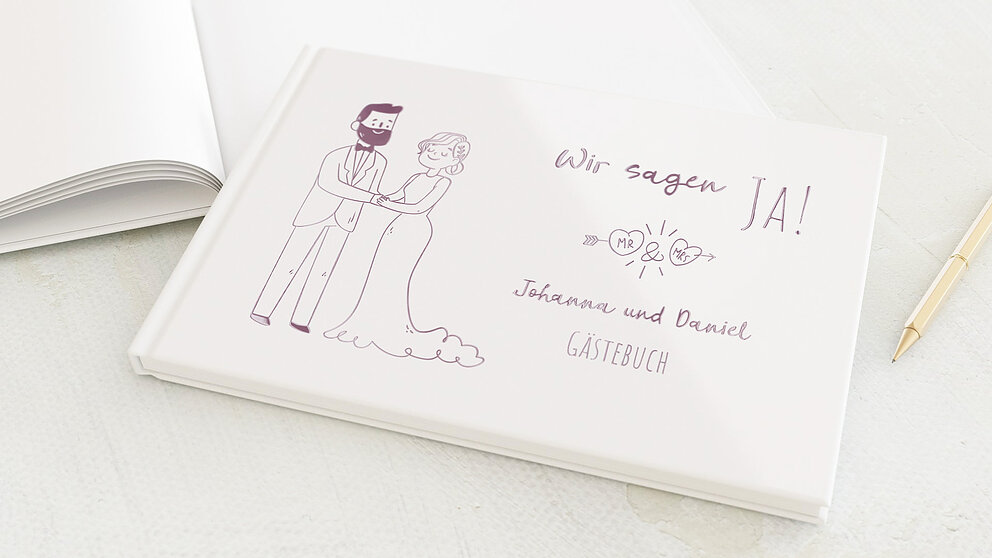 Wir sagen JA!
MR & MRS
Johanna und Daniel
GÄSTEBUCH